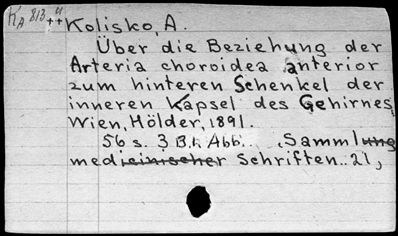 KA 813 4
++ Kolisko, A.
Über die Beziehung der
Arteria choroidea anterior
zum hinteren Schenkel der
inneren Kapsel des Gehirnes.
Wien, Hölder, 1891.
56 s. 3 Bl. Abb. , Sammlung
medicinischer Schriften.. 21,